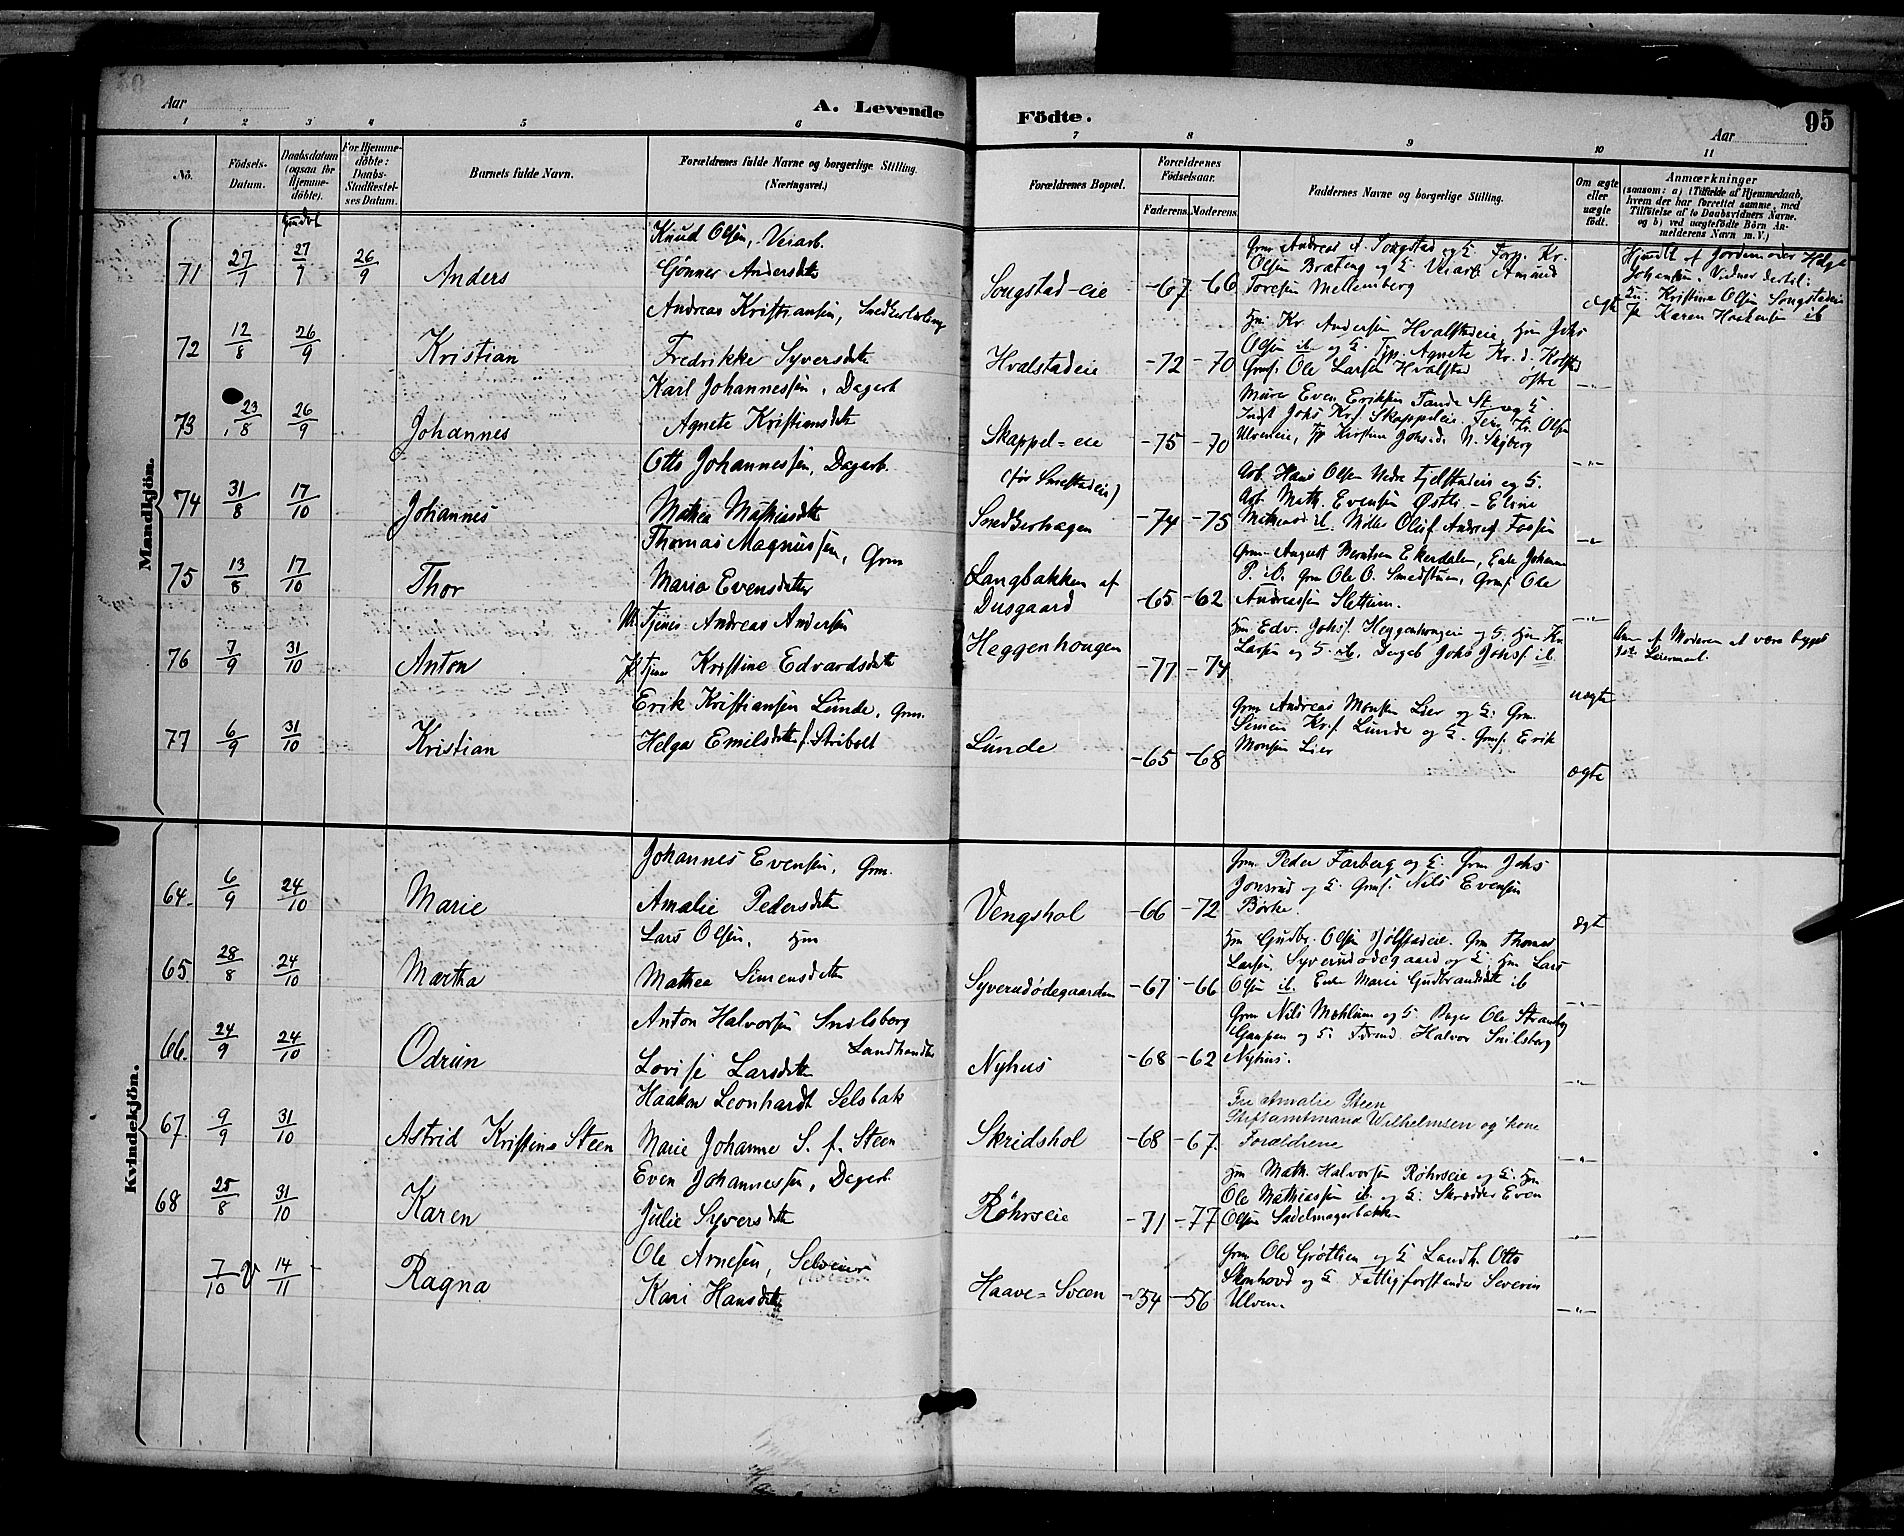 Aar
A. Levende
Födte.
Aar
95
1 2 3 4 5 6 7 8 9 10 11
No.
Födsels-Datum.
Daabsdatum (ogsaa for Hjemme-döbte).
For Hjemme-döbte: Daabs-Stadfæstel-ses Datum.
Barnets fulde Navn.
Forældrenes fulde Navne og borgerlige Stilling. (Næringsvei.)
Forældrenes Bopæl.
Forældrenes Födselsaar.
Faderens. Moderens.
Faddernes Navne og borgerlige Stilling.
Om ægte eller uægte födt.
Anmærkninger
(saasom: a) i Tilfælde af Hjemmedaab,
hvem der har forrettet samme, med
Tilföielse af to Daabsvidners Navne.
og b) ved uægtefödte Börn An-
melderens Navn m. V.)
Mandkjön.
71 27/7 27/7 26/9 Anders
Knud Olsen, Veiarb.
Gønner Andersdtr
Songstad-eie -67 -66
Grm Andreas A. Songstad og H. Forp. Kr.
Olsen Brateng og H. Veiarb Amund
Toresen Mellemberg
ægte
Hjmdbt af Jordemoder Helge
Johansen, Vidner dertil:
Kristine Olsen Songstadeie
Karen Haakensen ib
72 12/8 26/9 Kristian
Andreas Kristiansen, Snedkerlærling
Fredrikke Syversdtr
Hvalstadeie -72 -70
Hm Kr. Andersen Hvalstadeie, Hm Johs
Olsen ib og H. Tjp. Agnete Kr.d. Kolstad østre
Grmf. Ole Larsen Hvalstad
-"-
73 23/8 26/9 Johannes
Karl Johannessen, Dagarb
Agnete Kristiansdtr
Skappel-eie -75 -70
Murer Even Eriksen Tande St. og H
Indst Johs Kr.f. Skappeleie, Kr. Olsen
Ulveneie, Tjp Kirstine Johs.d. N. Skjberg
-"-
74 31/8 17/10 Johannes
Otto Johannessen, Dagarb.
Mathea Mathiasdtr
(før Smestadeie)
Snedkerhagen -74 -75
Arb. Hans Olsen Nedre Fjelstadeie og H.
Arb. Math. Evensen Østli - Eline
ib. Møller Oluf Andreas Fossen
-"-
75 13/8 17/10 Thor
Thomas Magnussen, Grm
Maria Evensdatter
Langbakken af
Dusgaard -65 -62
Grm August Berntsen Ekerdalen, Enke Johanne
P. ib. Grm Ole O. Smedstuen, Grmf. Ole
Andreassen Slettum.
-"-
76 7/9 31/10 Anton
Tjener Andreas Andersen
Kristine Edvardsdtr
Heggenhougen -77 -74
Hm Edv. Johsf. Heggenhougeie og H. Hm Kr.
Larsen og H. ib. Dagarb Johs Johsf. ib
uægte
Anm. af Moderen at være begges
1ste Leiermaal.
77 6/9 31/10 Kristian
Erik Kristiansen Lunde, Grm.
Helga Emilsdtr f. Stribolt
Lunde -65 -68
Grm Andreas Monsen Lier og H. Grm.
Simen Kr.f. Lunde og H. Grmf. Erik
Monsen Lier
ægte
Kvindekjön.
64. 6/9 24/10 Marie
Johannes Evensen, Grm.
Amalie Pedersdtr
Vengshol -66 -72
Grm. Peder Farberg og H. Grm Johs
Jonsrud og H. Grmf. Nils Evensen
Børke.
ægt
65. 28/8 24/10 Martha
Lars Olsen, Hm
Mathea Simensdtr
Syverudødegaarden -67 -66
Hm Gudbr. Olsen Hjølstadeie. Grm Thomas
Larsen Syverudødegaard og H. Hm Lars
Olsen ib. Enke Marie Gudbrandsdtr ib
-"-
66. 24/9 24/10 Odrun
Anton Halvorsen Snilsberg
Landhandler
Lovise Larsdtr
Nyhus -68 -62
Grm Nils Mæhlum og H. Bager Ole Strandby
Gaupen og H. Formd. Halvor Snilsberg
Nyhus.
"
67. 9/9 31/10 Astrid Kristine Steen
Haakon Leonhardt Selsbak
Marie Johanne S. f. Steen
Skridshol -68 -67.
Frk Amalie Steen
Stiftamtmand Wilhelmsen og kone
Forældrene
"
68 25/8 31/10 Karen
Even Johannessen, Dagarb.
Julie Syversdtr
Røhrseie -71 -77
Hm Math. Halvorsen Røhrseie og H. Hm
Ole Mathiassen ib. og H. Skrædder Even
Olsen Sadelmagerbakken
"
7/10 V 14/11 Ragna
Ole Arnesen, Selveier
Kari Hansdtr
Haave-Sveen -54 -56
Grm Ole Grøtlien og H Landh. Otto
Skjenhovd og H. Fattigforstander Severin
Ulven.
-"-